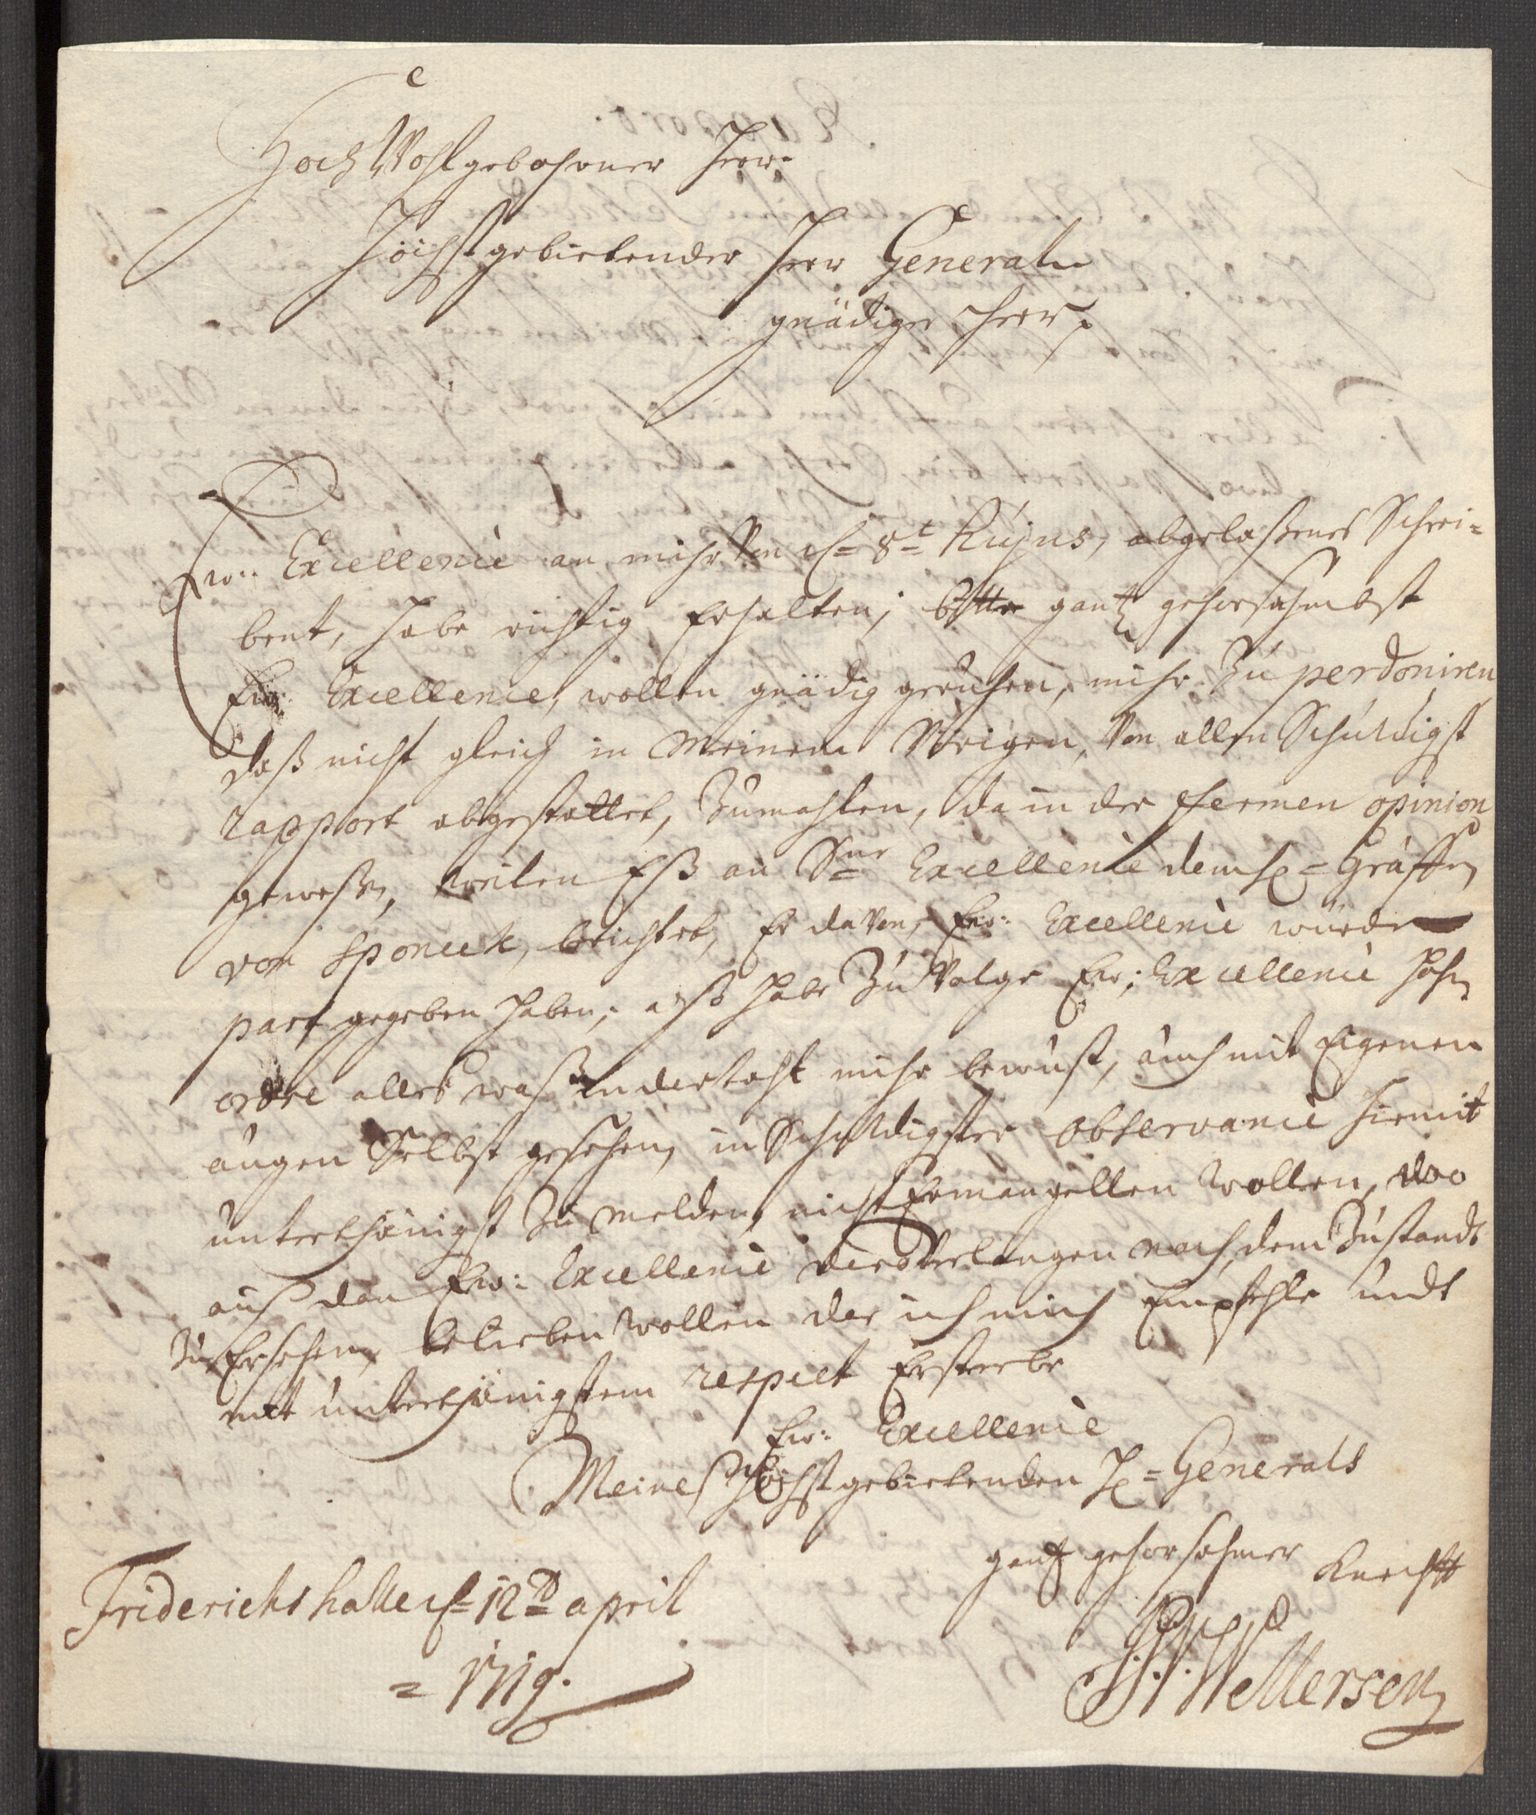 HochWohlgebohrner Herr.
Höchstgebietender Herr General
gnädiger Herr.
Ew: Excellence an mihr Von d= 8t hujus, abgelaßenes Schrei=
bent, habe richtig Erhalten; bitte gantz gehorsahmbst
Ew: Excellence, wollen gnädig geruhen, mihr Zu perdoniren
daß nicht gleich in meinem Vorigen, Von allen Schuldigst
rapport abgestattet, Zumahlen, da in der fermen opinion
geweßen, weilen Eß an Snr Excellence dem H= Gräffen
von Sponeck, berichtet, Er davon, Ew: Excellence würde
part gegeben haben; alß habe Zu Volge Ew: Excellence hohe
ordre alles waß mihr bewust, auch mit Eigenen
augen Selbst gesehen, in Schuldigster observance hiemit
unterthänigst Zu melden, nicht Ermangellen wollen, woo
auß dan Ew: Excellence dero Verlangen nach, dem Zustandt
Zu Ersehen, belieben wollen der ich mich Empfehle undt
mit unterthänigstem respect Ersterbe
Ew: Excellence
Meines Höchstgebietenden H= Generals
gantz gehorsahmer Knecht
Friderichshall d= 12t april
= 1719.
Wellersen